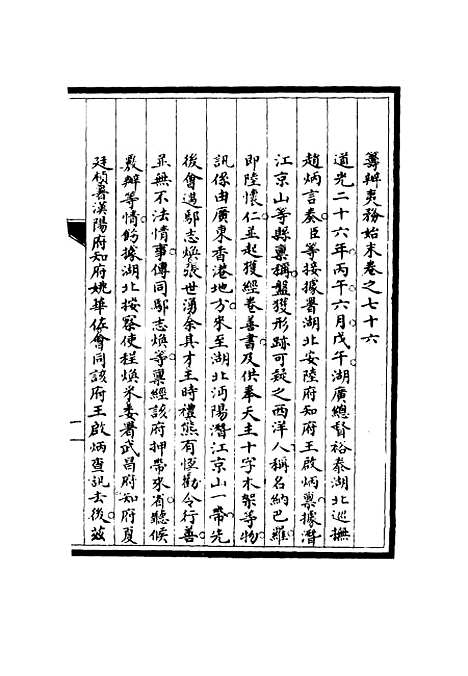 籌辦夷務始末卷之七十六
道光二十六年丙午六月戊午湖廣總督裕泰湖北巡撫
趙炳言奏臣等接據署湖北安陸府知府王啟炳稟據潛
江京山等縣稟稱盤獲形跡可疑之西洋人稱名納巴羅
即陸懷仁並起獲經卷善書及供奉天主十字木架等物
訊係由廣東香港地方來至湖北沔陽潛江京山一帶先
後會遇鄢志煥張世湧余其才王時禮熊有恆勸令行善
並無不法情事傳同鄢志煥等稟經該府押帶來省聽候
覈辦等情飭據湖北按察使程煥采委署武昌府知府夏
廷楨署漢陽府知府姚華佐會同該府王啟炳查訊去後茲
一